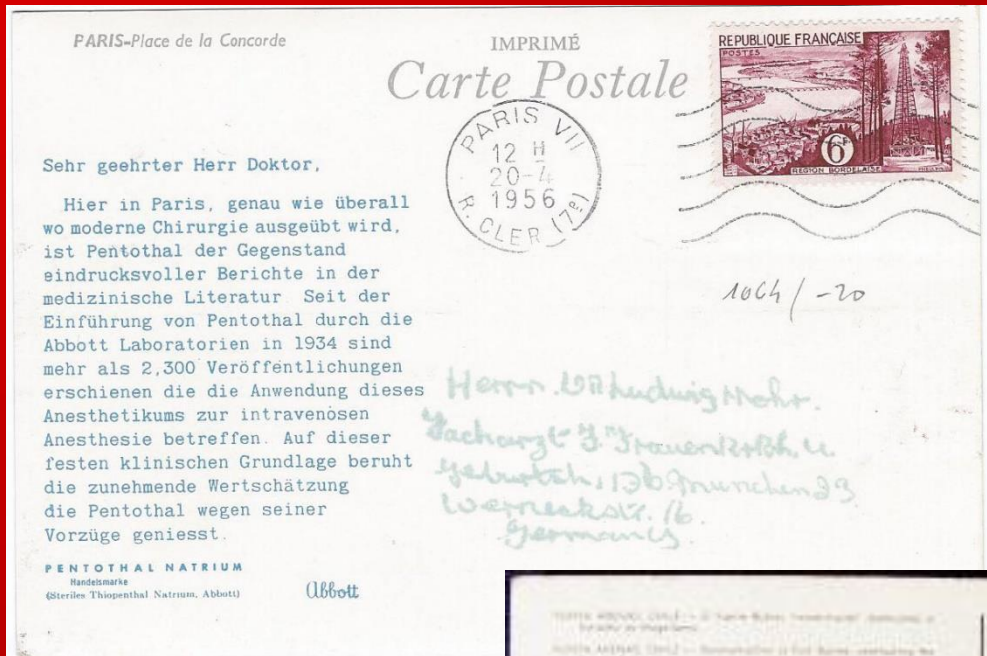 PARIS-Place de la Concorde
IMPRIMÉ
Carte Postale
REPUBLIQUE FRANÇAISE
POSTES
6F
REGION BORDELAISE
PARIS VII
12 H
20-4
1956
R. CLER (7e)
Sehr geehrter Herr Doktor,
Hier in Paris, genau wie überall
wo moderne Chirurgie ausgeübt wird,
ist Pentothal der Gegenstand
eindrucksvoller Berichte in der
medizinische Literatur Seit der
Einführung von Pentothal durch die
Abbott Laboratorien in 1934 sind
mehr als 2,300 Veröffentlichungen
erschienen die die Anwendung dieses
Anesthetikums zur intravenösen
Anesthesie betreffen. Auf dieser
festen klinischen Grundlage beruht
die zunehmende Wertschätzung
die Pentothal wegen seiner
Vorzüge geniesst.
PENTOTHAL NATRIUM
Handelsmarke
(Steriles Thiopenthal Natrium, Abbott)
Abbott
1064/-20
Herrn. DR Ludwig Mohr.
Facharzt f.
13b München 23
Werneckstr. 16.
Germany